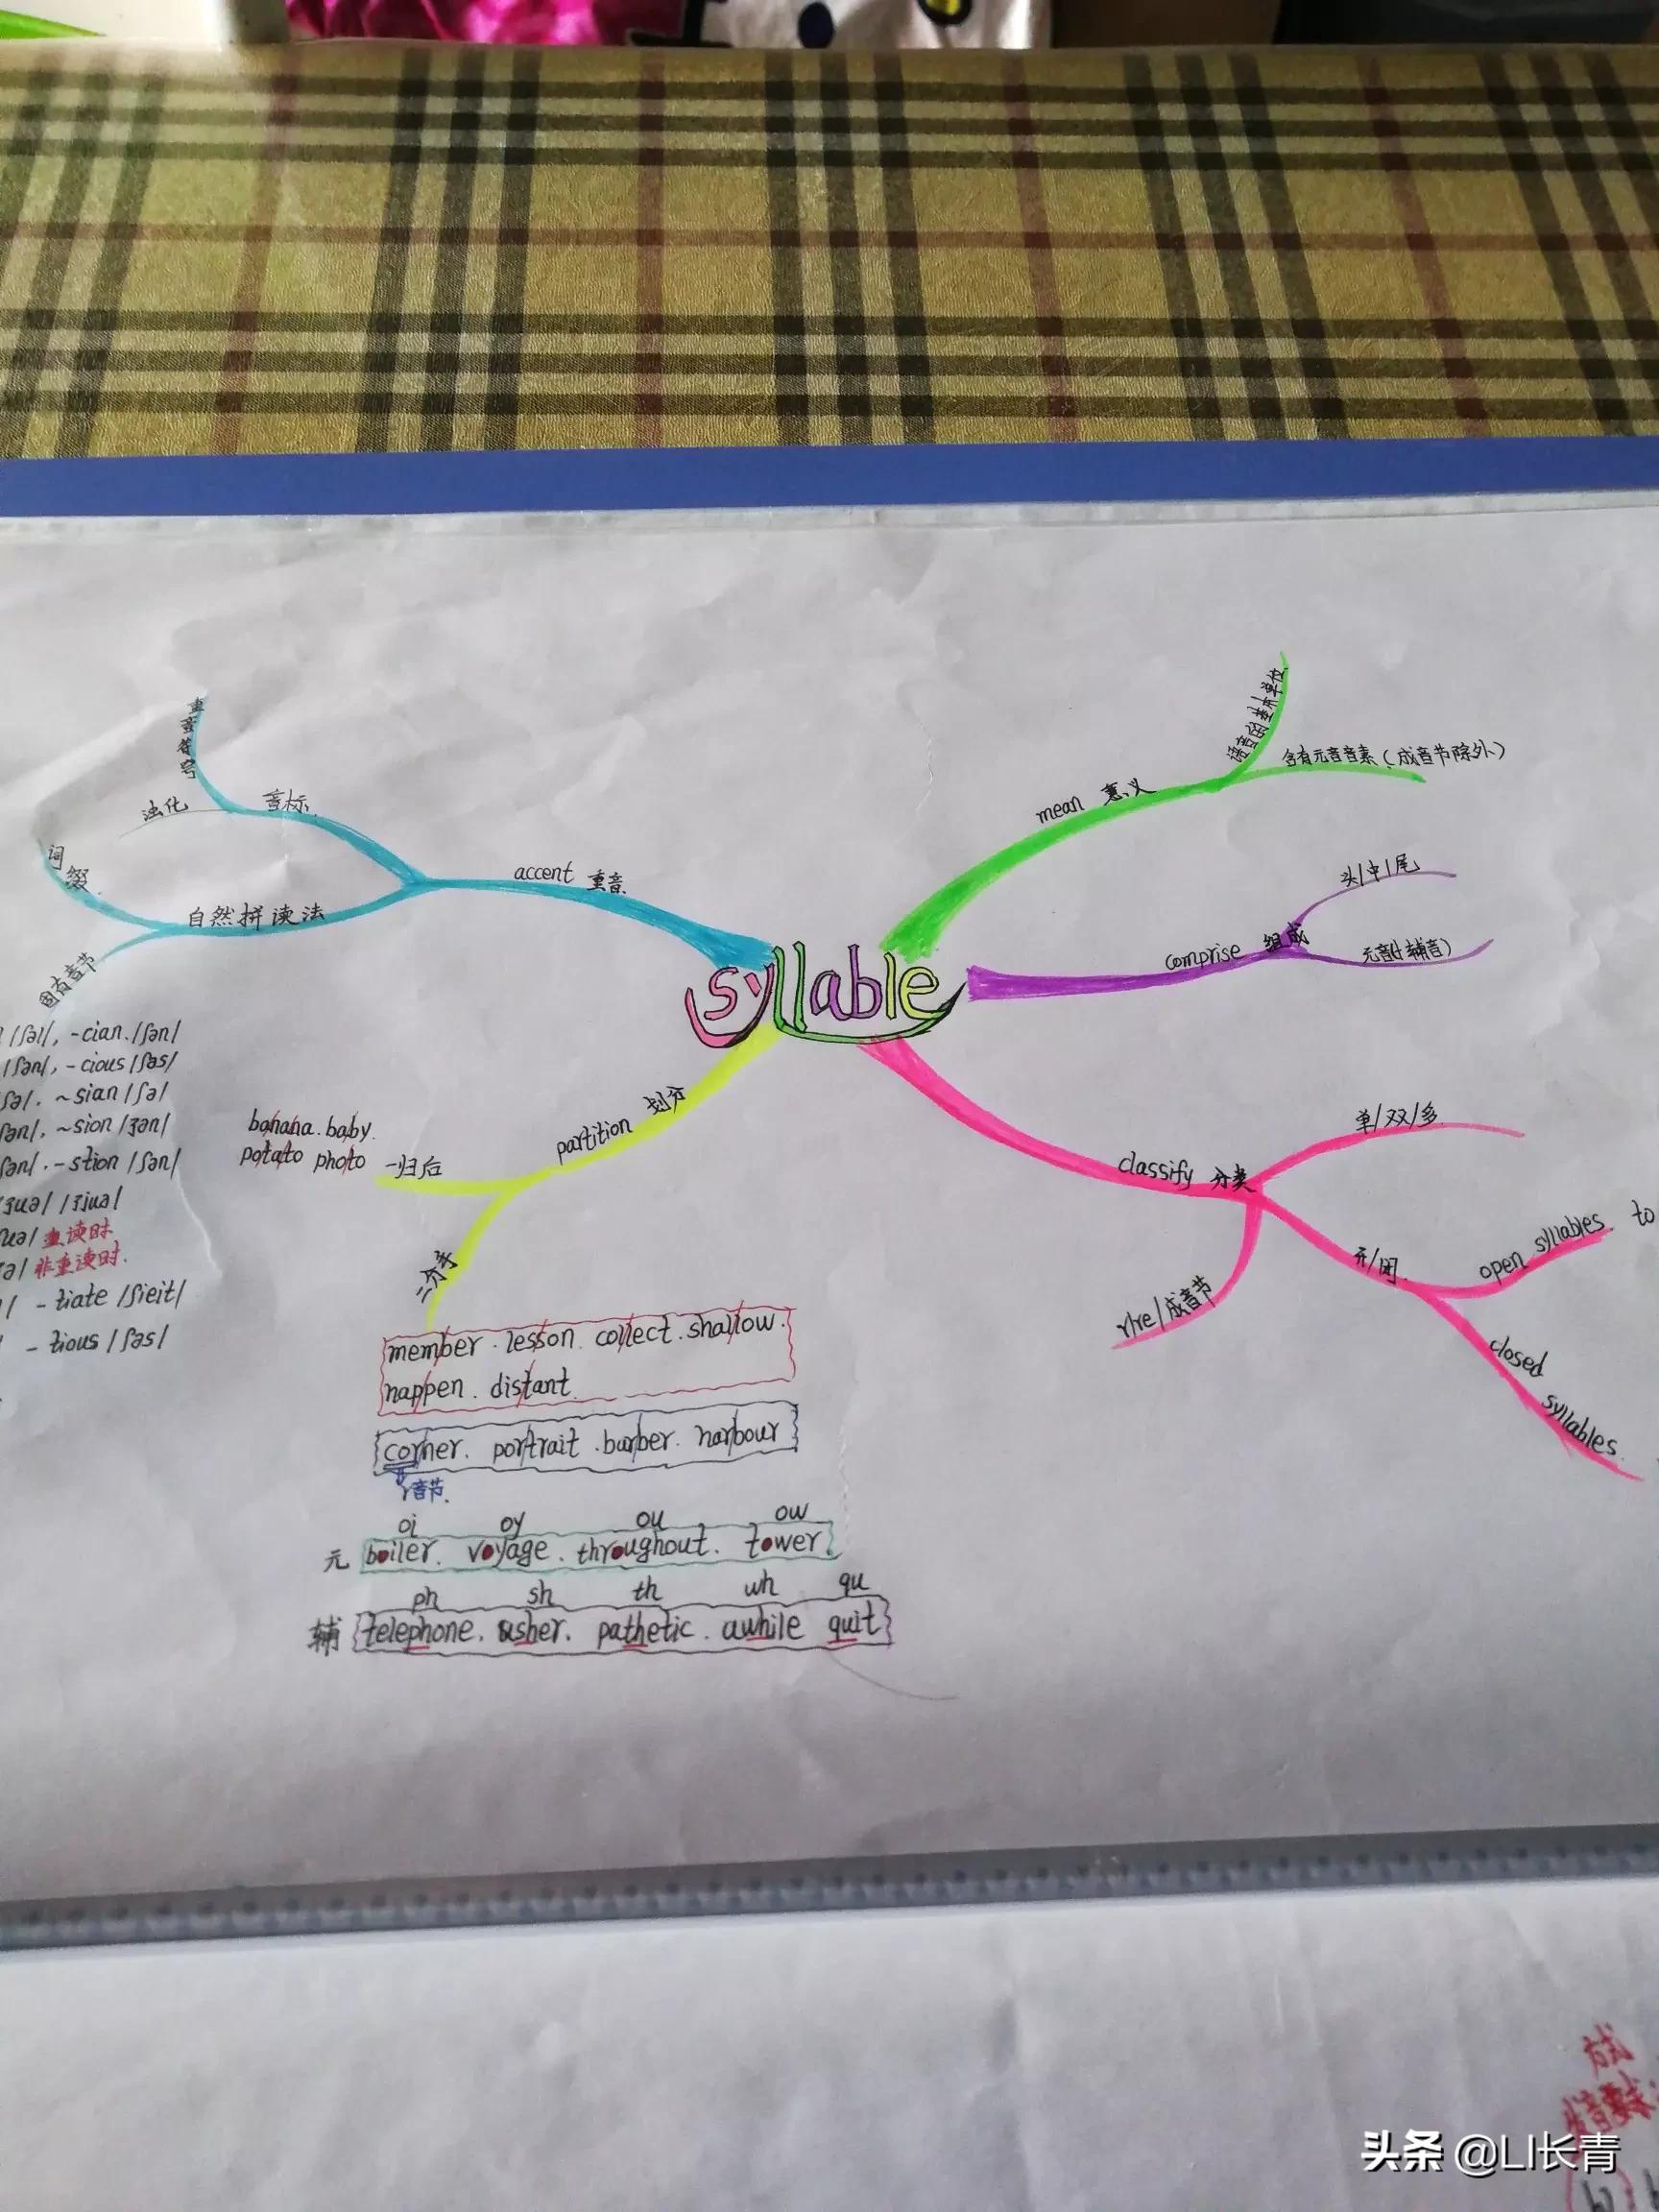 syllable
mean 意义
语音的基本单位
含有元音音素(成音节除外)
comprise 组成
头/中/尾
元音(+辅音)
classify 分类
单/双/多
开/闭
open syllables to
closed syllables
r/re/成音节
partition 划分
一归后
banana. baby.
potato photo
二分手
member. lesson. collect. shallow.
happen. distant.
corner. portrait. barber. harbour
r音节.
oi oy ou ow
元 boiler. voyage. throughout. tower.
ph sh th wh qu
辅 telephone. usher. pathetic. awhile quit
accent 重音
音标
重音符号
浊化
自然拼读法
词缀
固有音节
/ʃəl/, -cian /ʃən/
/ʃən/, -cious /ʃəs/
ʃə/. ~sian /ʃə/
ʃən/, ~sion /ʒən/
ʃən/. -stion /ʃən/
ʒuə/ /ʒjuə/
uə/ 重读时.
ə/ 非重读时.
/ -tiate /ʃieit/
-tious /ʃəs/
方式
头条 @LI长青